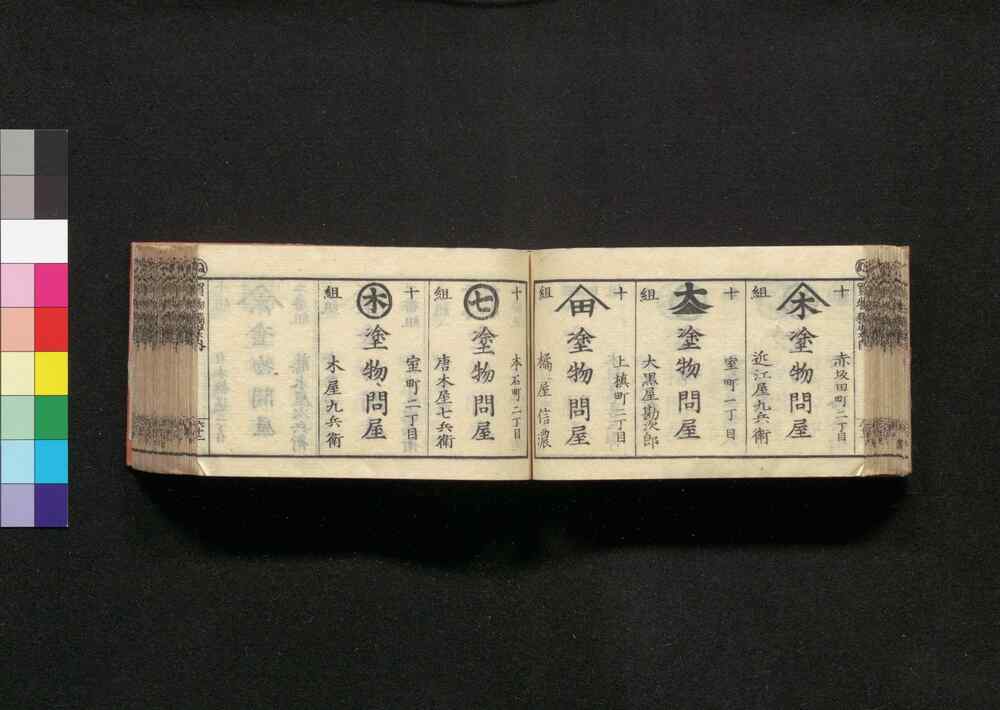 十
組
赤坂田町二丁目
塗物問屋
近江屋九兵衛
十
組
室町一丁目
塗物問屋
大黒屋勘次郎
十
組
上槙町二丁目
田
塗物問屋
橘屋信濃
十
組
本石町二丁目
七
塗物問屋
唐木屋七兵衛
十
組
室町二丁目
木
塗物問屋
木屋九兵衛